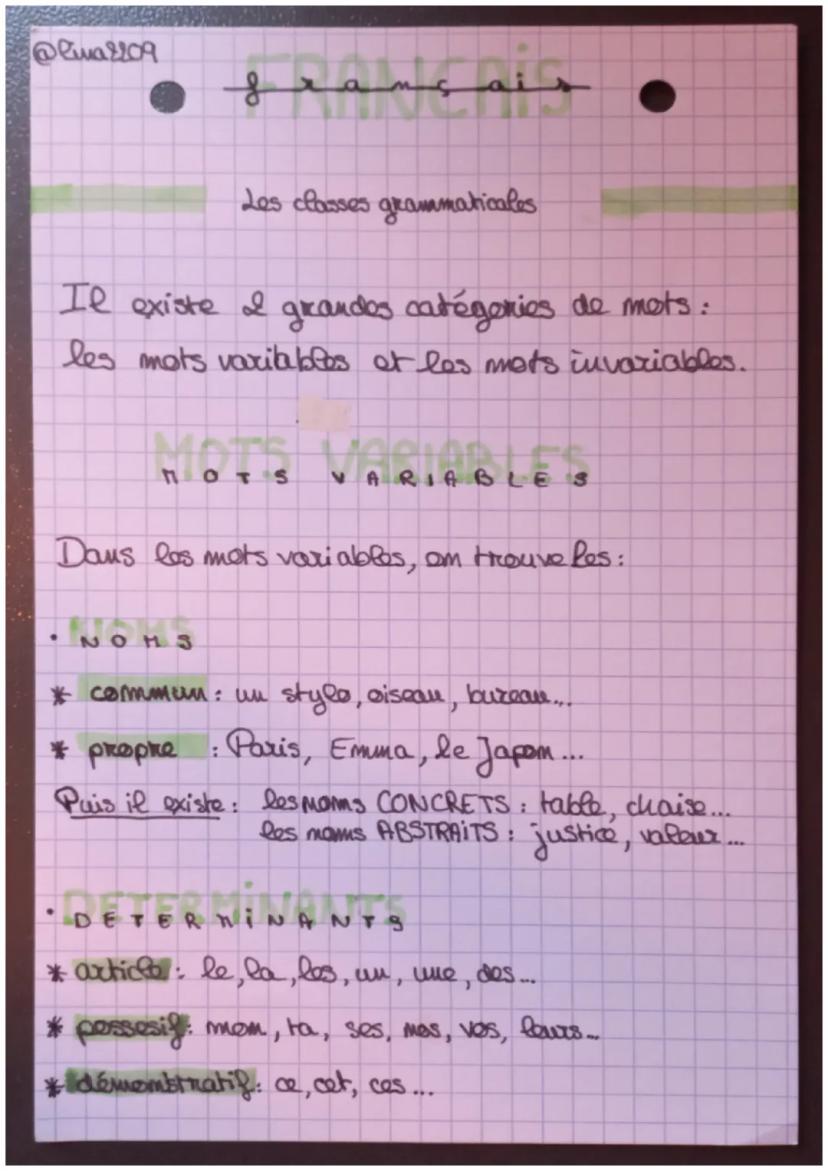 @lwa2209
FRANÇAIS
français
Les classes grammaticales
Il existe 2 grandes catégories de mots :
les mots variables et les mots invariables.
MOTS VARIABLES
MOTS VARIABLES
Dans les mots variables, on trouve les :
• NOMS
NOMS
* commun : un stylo, oiseau, bureau...
* propre : Paris, Emma, le Japon...
Puis il existe : les noms CONCRETS : table, chaise...
les noms ABSTRAITS : justice, valeur...
• DETERMINANTS
DETERMINANTS
* article : le, la, les, un, une, des...
* possesif : mon, ta, ses, nos, vos, leurs...
* démonstratif : ce, cet, ces...